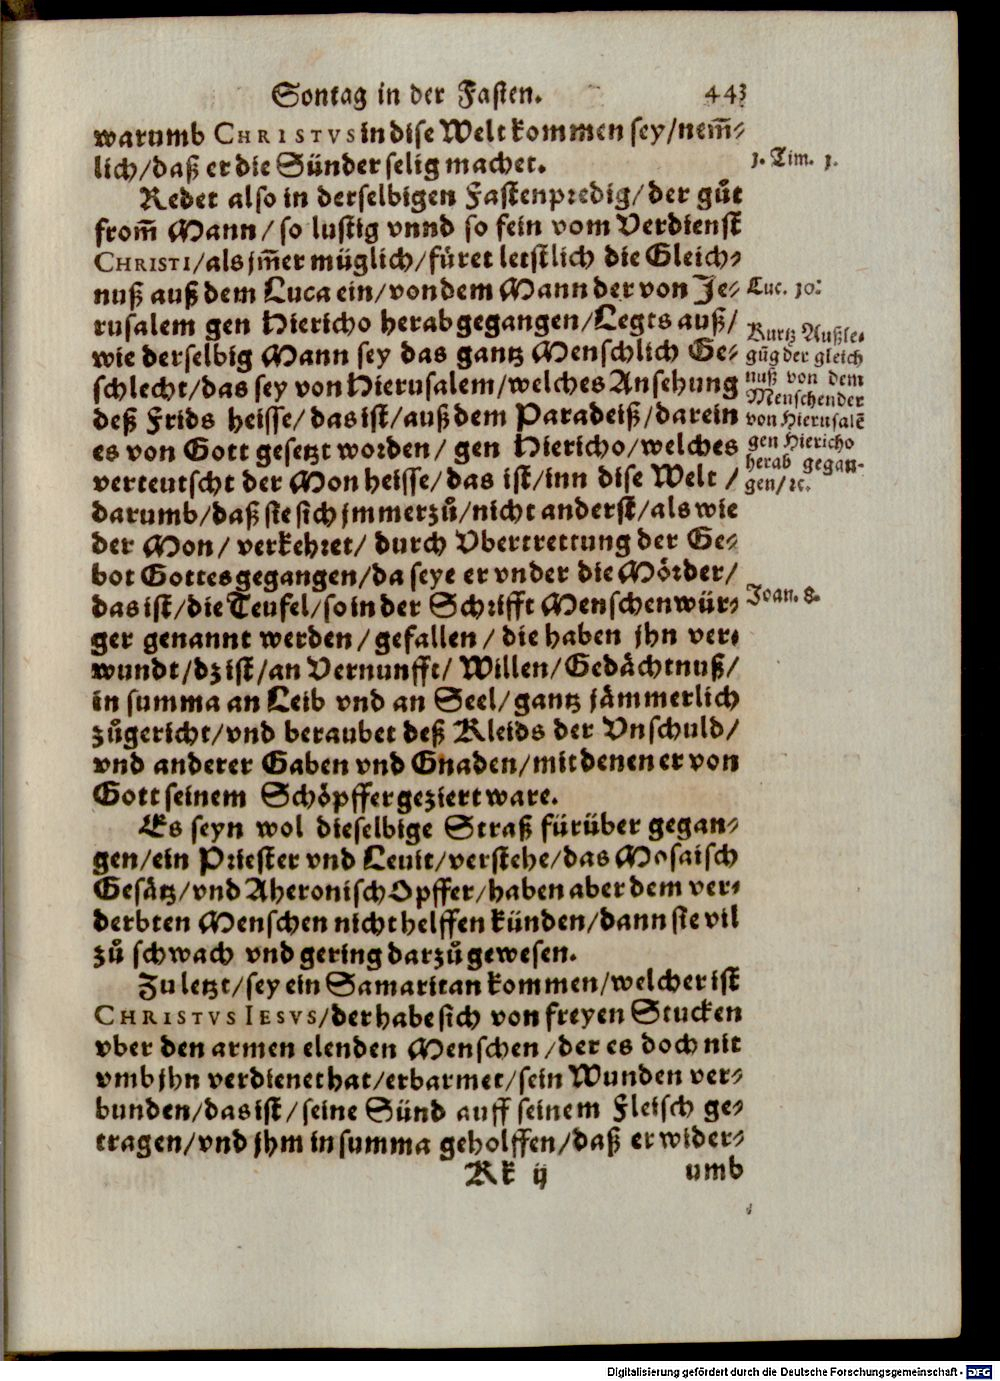 Sontag in der Fasten. 443
warumb CHRISTVS in dise Welt kommen sey/nem̃-
lich/daß er die Sünder selig machet.
1. Tim. 1.
Redet also in derselbigen Fastenpredig/der gůt
from̃ Mann/so lustig vnnd so fein vom Verdienst
CHRISTI/als jm̃er müglich/füret letstlich die Gleich-
nuß auß dem Luca ein/von dem Mann der von Je-
Luc. 10:
rusalem gen Hiericho herab gegangen/Legts auß/
wie derselbig Mann sey das gantz Menschlich Ge-
schlecht/das sey von Hierusalem/welches Ansehung
deß Frids heisse/das ist/auß dem Paradeiß/darein
es von Gott gesetzt worden/gen Hiericho/welches
verteutscht der Mon heisse/das ist/inn dise Welt/
Kurtz Außle-
gũg der gleich
nuß von dem
Menschen der
von Hierusalẽ
gen Hiericho
herab gegan-
gen/ꝛc.
darumb/daß sie sich jmmerzů/nicht anderst/als wie
der Mon/verkehret/durch Vbertrettung der Ge-
bot Gottes gegangen/da seye er vnder die Mörder/
das ist/die Teufel/so in der Schrifft Menschenwür-
Joan. 8.
ger genannt werden/gefallen/die haben jhn ver-
wundt/dz ist/an Vernunfft/Willen/Gedächtnuß/
in summa an Leib vnd an Seel/gantz jämmerlich
zůgericht/vnd beraubet deß Kleids der Vnschuld/
vnd anderer Gaben vnd Gnaden/mit denen er von
Gott seinem Schöpffer geziert ware.
Es seyn wol dieselbige Straß fürüber gegan-
gen/ein Priester vnd Leuit/verstehe/das Mosaisch
Gesätz/vnd Aheronisch Opffer/haben aber dem ver-
derbten Menschen nicht helffen künden/dann sie vil
zů schwach vnd gering darzů gewesen.
Zu letzt/sey ein Samaritan kommen/welcher ist
CHRISTVS IESVS/der habe sich von freyen Stucken
vber den armen elenden Menschen/der es doch nit
vmb jhn verdienet hat/erbarmet/sein Wunden ver-
bunden/das ist/seine Sünd auff seinem Fleisch ge-
tragen/vnd jhm in summa geholffen/daß er wider-
Kk ij umb
Digitalisierung gefördert durch die Deutsche Forschungsgemeinschaft - DFG